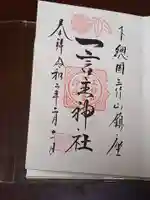 下総国三竹山鎮座
一言主神社
奉拝 令和二年二月十一日